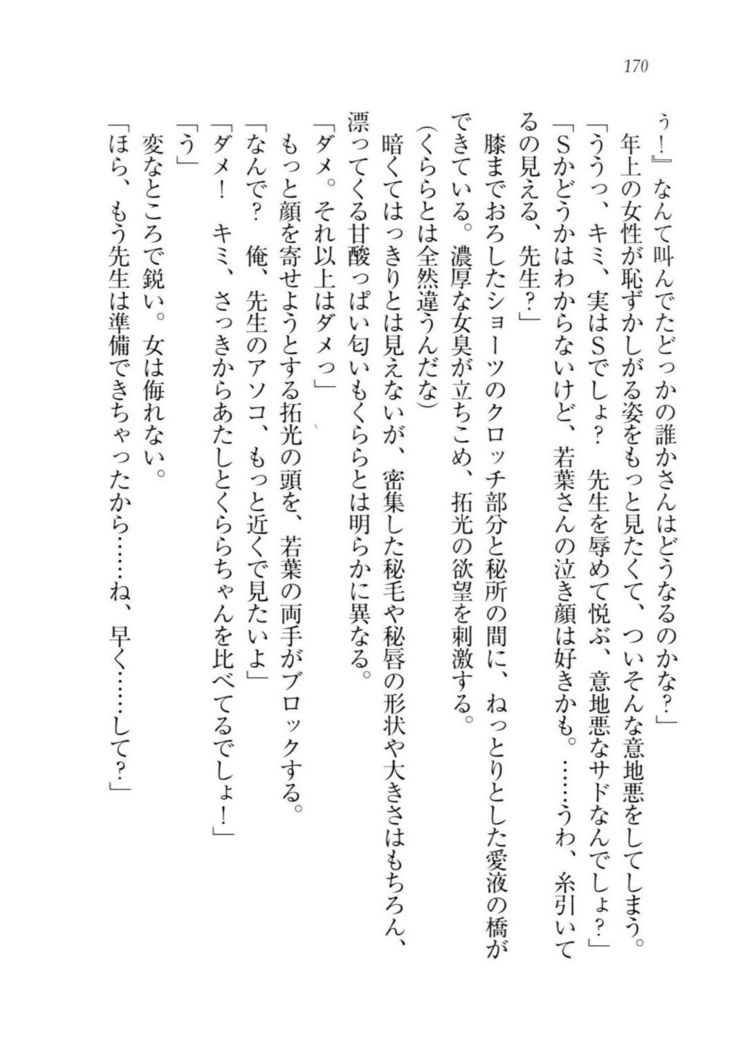 170
ぅ！』なんて叫んでたどっかの誰かさんはどうなるのかな？」
年上の女性が恥ずかしがる姿をもっと見たくて、ついそんな意地悪をしてしまう。
「ううっ、キミ、実はＳでしょ？　先生を辱めて悦ぶ、意地悪なサドなんでしょ？」
「Ｓかどうかはわからないけど、若葉さんの泣き顔は好きかも。……うわ、糸引いて
るの見える、先生？」
膝までおろしたショーツのクロッチ部分と秘所の間に、ねっとりとした愛液の橋が
できている。濃厚な女臭が立ちこめ、拓光の欲望を刺激する。
（くららとは全然違うんだな）
暗くてはっきりとは見えないが、密集した秘毛や秘唇の形状や大きさはもちろん、
漂ってくる甘酸っぱい匂いもくららとは明らかに異なる。
「ダメ。それ以上はダメっ」
もっと顔を寄せようとする拓光の頭を、若葉の両手がブロックする。
「なんで？　俺、先生のアソコ、もっと近くで見たいよ」
「ダメ！　キミ、さっきからあたしとくららちゃんを比べてるでしょ！」
「う」
変なところで鋭い。女は侮れない。
「ほら、もう先生は準備できちゃったから……ね、早く……して？」